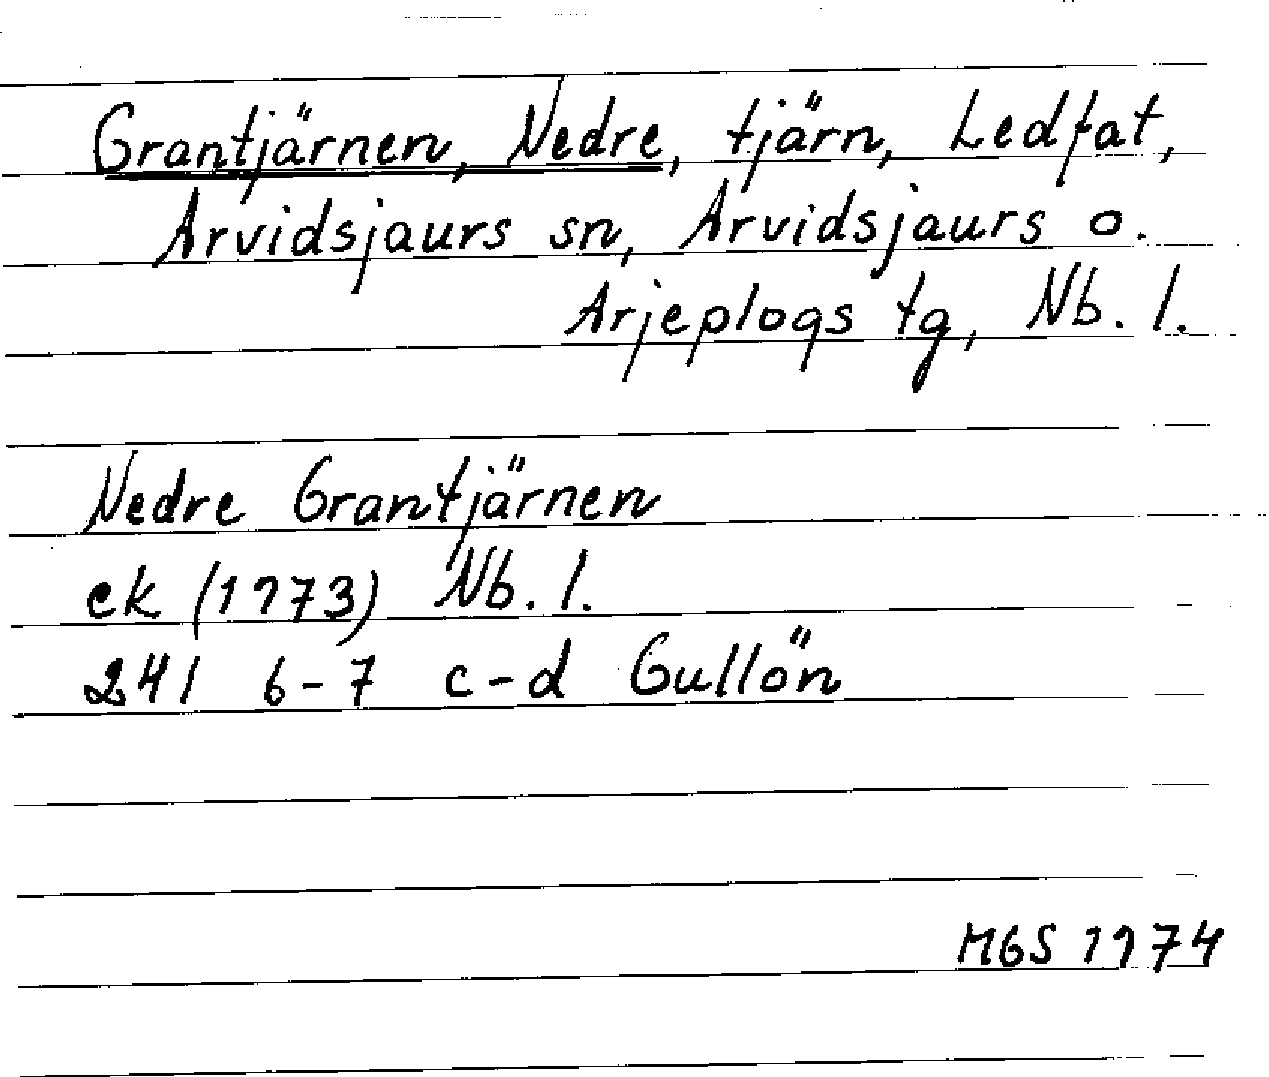 Grantjärnen, Nedre, tjärn, Ledfat,
Arvidsjaurs sn, Arvidsjaurs o.
Arjeplogs tg, Nb. l.
Nedre Grantjärnen
ek (1973) Nb. l.
24I 6-7 c-d Gullön
MGS 1974